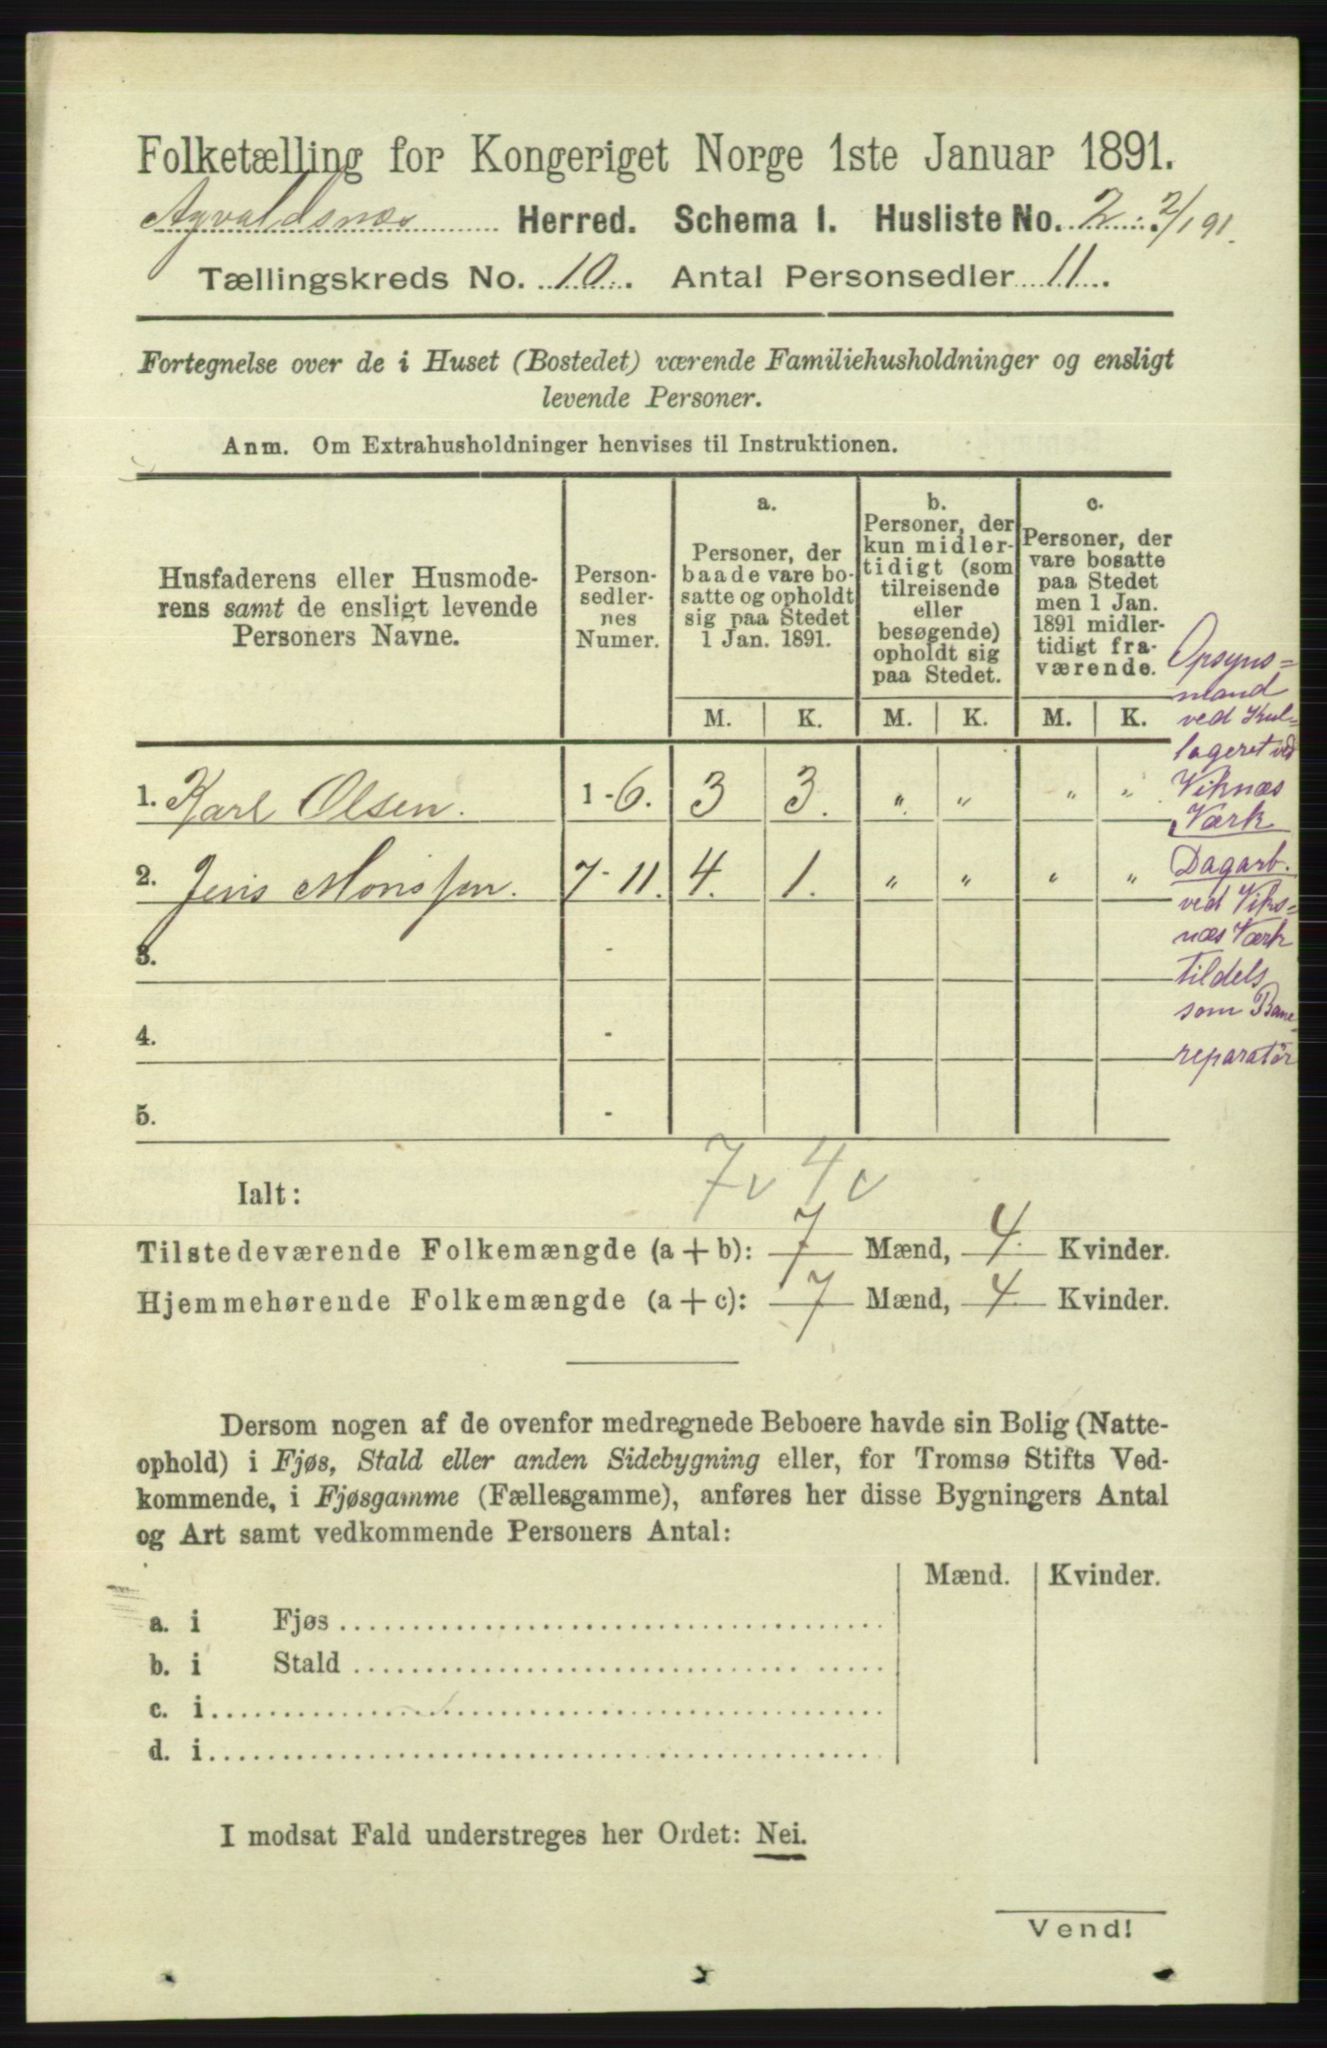 Folketælling for Kongeriget Norge 1ste Januar 1891.
Avaldsnæs Herred. Schema 1. Husliste No. 2. 2/1 91.
Tællingskreds No. 10. Antal Personsedler 11.
Fortegnelse over de i Huset (Bostedet) værende Familiehusholdninger og ensligt
levende Personer.
Anm. Om Extrahusholdninger henvises til Instruktionen.
Husfaderens eller Husmode-
rens samt de ensligt levende
Personers Navne.
Person-
sedler-
nes
Numer.
a.
Personer, der
baade vare bo-
satte og opholdt
sig paa Stedet
1 Jan. 1891.
b.
Personer, der
kun midler-
tidigt (som
tilreisende
eller
besøgende)
opholdt sig
paa Stedet.
c.
Personer, der
vare bosatte
paa Stedet
men 1 Jan.
1891 midler-
tidigt fra-
værende.
M. K. M. K. M. K.
1. Karl Olsen. 1-6. 3 3. " " " "
2. Jens Monssen. 7-11. 4. 1. " " " "
3. -
4. -
5. -
Opsyns=
mand
ved Kul=
lageret ved
Viknæs
Værk
Dagarb.
ved Viks=
næs Værk
tildels
som Bane-
reparatör
7v 4v
Ialt:
Tilstedeværende Folkemængde (a + b): 7 Mænd, 4. Kvinder.
Hjemmehørende Folkemængde (a + c): 7 Mænd, 4. Kvinder.
Dersom nogen af de ovenfor medregnede Beboere havde sin Bolig (Natte-
ophold) i Fjøs, Stald eller anden Sidebygning eller, for Tromsø Stifts Ved-
kommende, i Fjøsgamme (Fællesgamme), anføres her disse Bygningers Antal
og Art samt vedkommende Personers Antal:
Mænd. Kvinder.
a. i Fjøs
b. i Stald
c. i
d. i
I modsat Fald understreges her Ordet: Nei.
Vend!